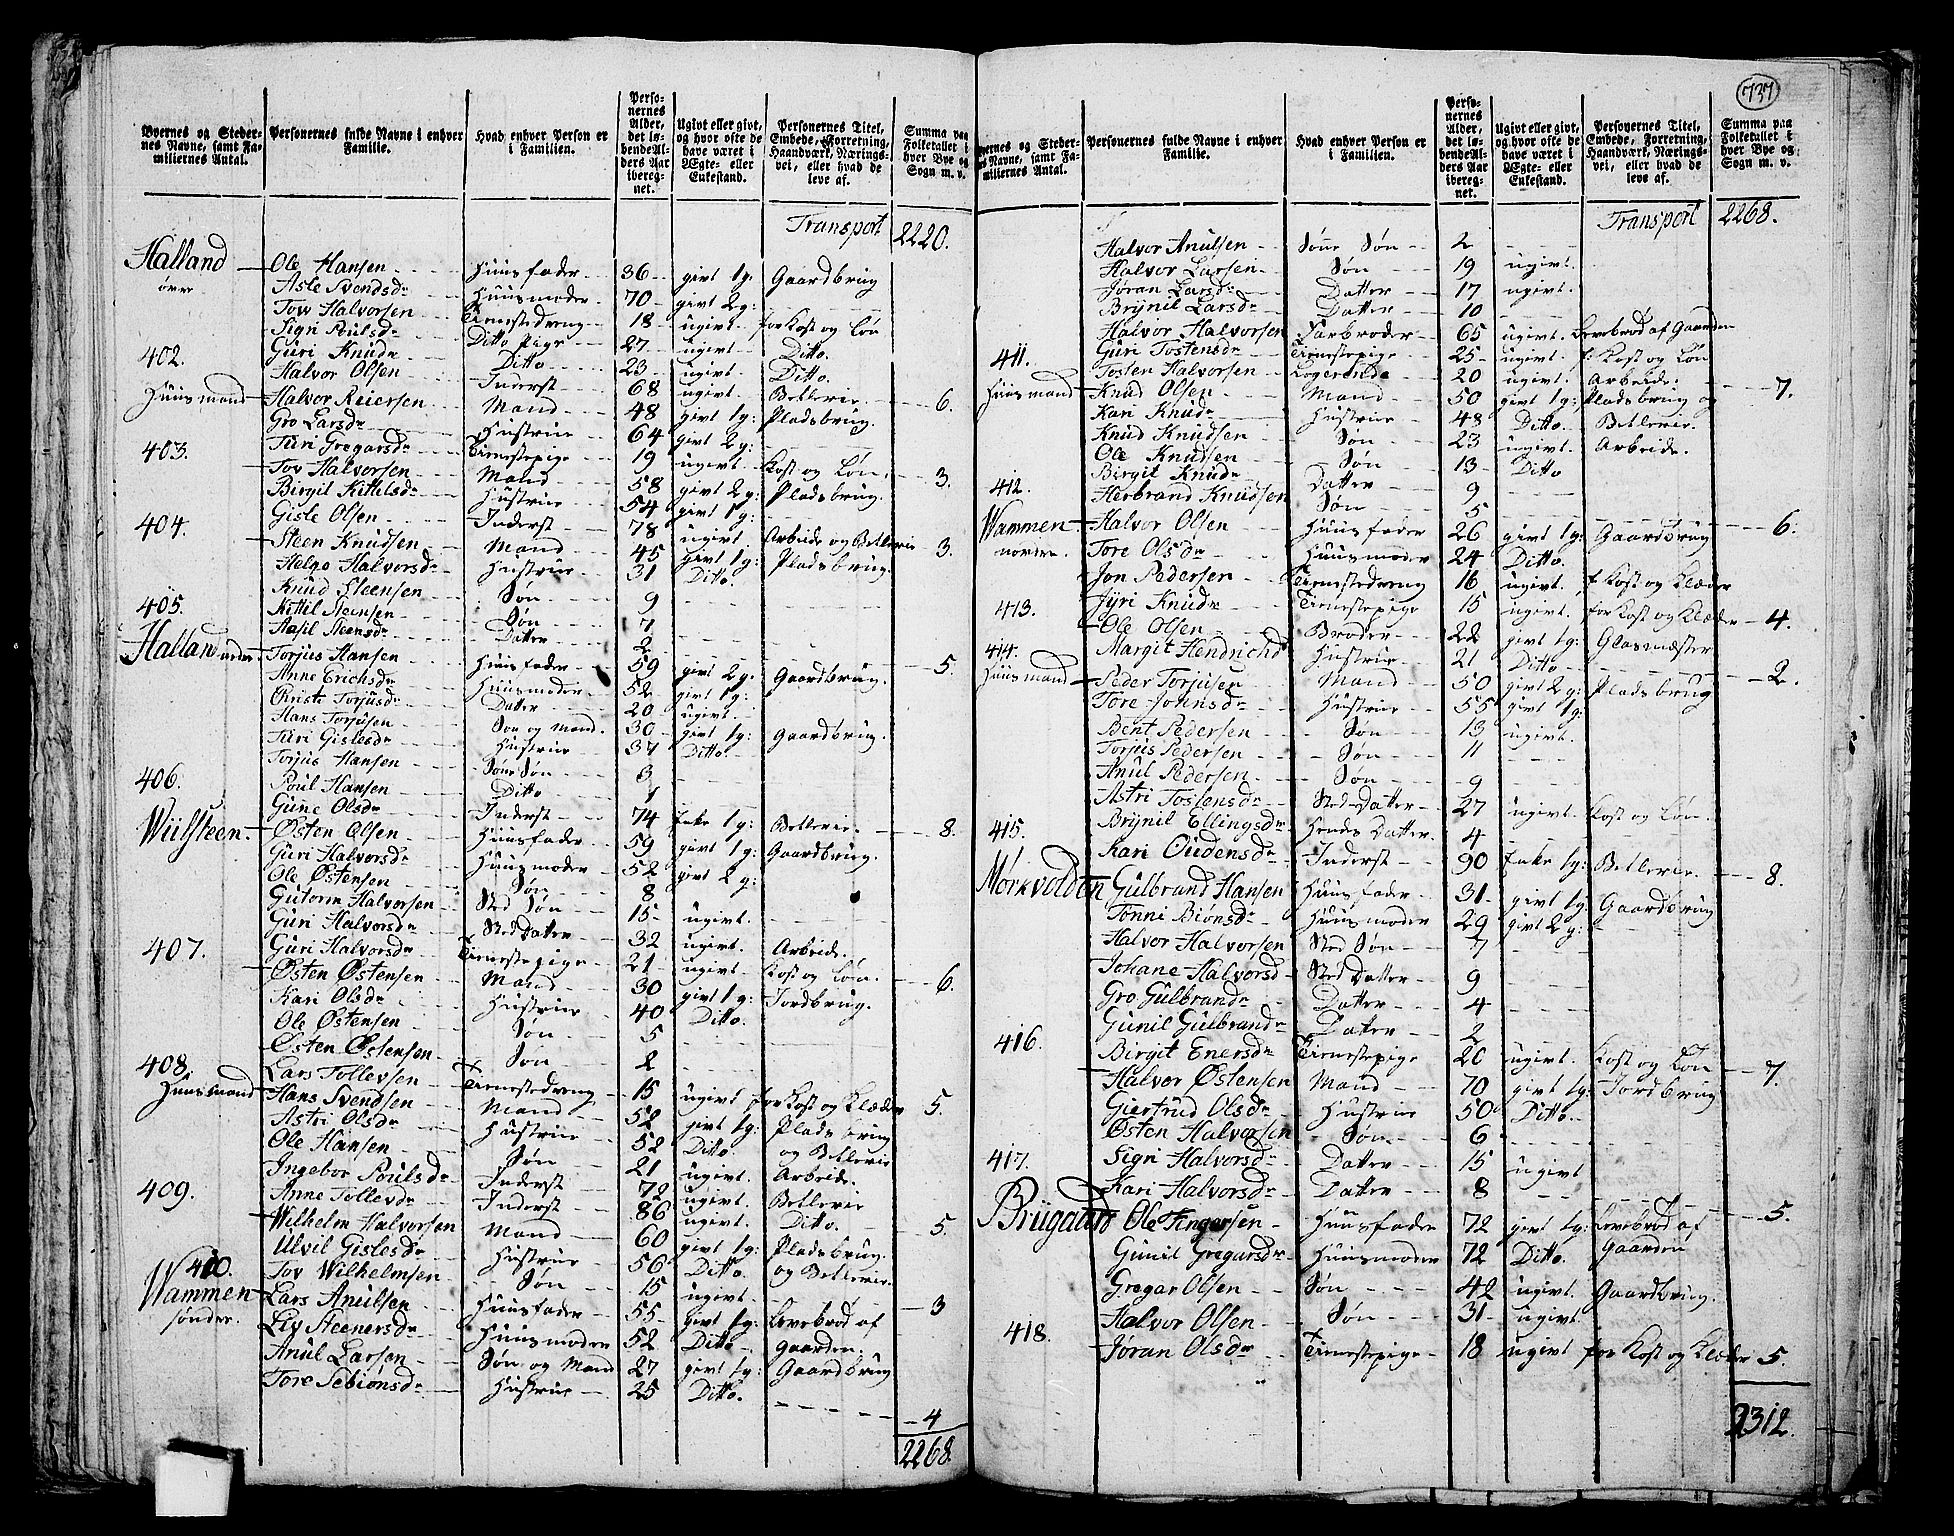 737
Byernes og Steder-nes Navne, samt Fa-miliernes Antal. Personernes fulde Navne i enhver Familie. Hvad enhver Person er i Familien. Perso-nernes Alder, det lø-bende Al-ders Aar ibereg-net. Ugivt eller givt, og hvor ofte de have været i Ægte- eller Enkestand. Personernes Titel, Embede, Forretning, Haandværk, Nærings-vei, eller hvad de leve af. Summa paa Folketallet i hver Bye og Sogn m. v.
Transport 2220.
Halland øvre Ole Hansen Huusfader 36 givt 1g: Gaardbrug
Asle Svendsdr Huusmoder 70 givt 2g:
Tov Halvorsen Tienestedreng 18 ugivt for Kost og Løn
Sign Poulsdr Ditto Pige 27 ugivt Ditto.
402. Guri Knudr Ditto 23 ugivt Ditto.
Halvor Olsen Inderst 68 ugivt. Betlerie. 6.
Huusmand Halvor Reiersen Mand 48 givt 1g: Pladsbrug.
Gro Larsdr Hustrue 64 givt 2g:
403. Turi Gregarsdr Tienestepige 19 ugivt. Kost og Løn. 3.
Tov Halvorsen Mand 58 givt 2g: Pladsbrug.
Birgit Kittelsdr Hustrue 54 givt 1g:
404. Gisle Olsen Inderst 78 ugivt. Arbeide og Betlerie 3.
Steen Knudsen Mand 45 givt 1g: Pladsbrug.
Helge Halvorsdr Hustrue 31 Ditto.
Knud Steensen Søn 9
405. Kittil Steensen Søn 7
Aasil Steensdr Datter 2 5.
Halland nedre Torjus Hansen Huusfader 59 givt 2g: Gaardbrug.
Anne Erichsdr Huusmoder 52 givt 1g:
Christi Torjusdr Datter 20 ugivt.
Hans Torjusen Søn og Mand. 30 givt 1g: Gaardbrug.
Turi Gislesdr Hustrue 37 Ditto.
Torjus Hansen Søne Søn 3
406. Poul Hansen Ditto 1
Gune Olsdr Inderst 74 Enke 1g: Betlerie. 8.
Wülsteen Østen Olsen Huusfader 59 givt 1g: Gaardbrug.
Guri Halvorsdr Huusmoder 52 givt 2g:
Ole Østensen Søn 8
Gutorm Halvorsen Sted Søn 15 ugivt.
Guri Halvorsdr Sted Datter 32 ugivt. Arbeide.
407. Guri Halvorsdr Tienestepige 21 ugivt. Kost og Løn. 6.
Østen Østensen Mand 30 givt 1g: Jordbrug.
Kari Olsdr Hustrue 40 Ditto.
Ole Østensen Søn 5
Østen Østensen Søn 2
408. Lars Tollevsen Tienestedreng 15 ugivt for Kost og Klæder 5.
Huusmand Hans Svendsen Mand 52 givt 1g: Plads brug
Astri Olsdr Hustrue 52 Ditto. og Betlerie
Ole Hansen Søn 21 ugivt. Arbeide.
Ingebor Poulsdr Inderst 72 ugivt. Betlerie
409. Anne Tollevdr Inderst 86 ugivt. Ditto. 5.
Wilhelm Halvorsen Mand 60 givt 1g: Pladsbrug.
Ulvil Gislesdr Hustrue 56 Ditto. og Betlerie.
410. Tov Wilhelmsen Søn 15 ugivt. 3
Wammen søndre. Lars Anulsen Huusfader 55 givt 1g: Levebrød af
Liv Steenersdr Huusmoder 52 Ditto. Gaarden.
Anul Larsen Søn og Mand 27 givt 1g: Gaardbrug
Tore Sebionsdr Hustrue 25 Ditto. 4
2268.
Byernes og Steder-nes Navne, samt Fa-miliernes Antal. Personernes fulde Navne i enhver Familie. Hvad enhver Person er i Familien. Perso-nernes Alder, det lø-bende Al-ders Aar ibereg-net. Ugivt eller givt, og hvor ofte de have været i Ægte- eller Enkestand. Personernes Titel, Embede, Forretning, Haandværk, Nærings-vei, eller hvad de leve af. Summa paa Folketallet i hver Bye og Sogn m. v.
Transport 2268.
Halvor Anulsen Søne Søn 2
Halvor Larsen Søn 19 ugivt.
Jøran Larsdr Datter 17 ugivt.
Brynil Larsdr Datter 10
Halvor Halvorsen Farbroder 65 ugivt. Levebrød af Gaarden
411. Guri Tostensdr Tienestepige 25 ugivt. f. Kost og Løn
Tosten Halvorsen Logerende 20 ugivt. Arbeide. 7.
Huusmand Knud Olsen Mand 50 givt 1g: Pladsbrug og
Kari Knudr Hustrue 48 Ditto. Betlerie.
Knud Knudsen Søn 23 ugivt. Arbeide.
Ole Knudsen Søn 13 Ditto
412. Birgit Knudr Datter 9
Herbrand Knudsen Søn 5 6.
Wammen nordre. Halvor Olsen Huusfader 26 givt 1g: Gaardbrug
Tore Olsdr Huusmoder 24 Ditto.
Jon Pedersen Tienestedreng 16 ugivt. f. Kost og Klæder
413. Jyri Knudr Tienestepige 15 ugivt. for Kost og Klæder 4.
Ole Olsen Broder 22 givt 1g: Glasmæster
414. Margit Hendrichsd Hustrue 21 Ditto 2.
Huusmand Peder Torjusen Mand 50 givt 2g: Pladsbrug
Tore Johnsdr Hustrue 55 givt 1g:
Bent Pedersen Søn 13 ugivt.
Torjus Pedersen Søn 11
Anul Pedersen Søn 9
Astri Tostensdr Sted Datter 27 ugivt. Kost og Løn.
415. Brynil Ellingsdr Hendes Datter 4
Kari Oudensdr Inderst 90 Enke 1g: Betlerie. 8.
Mörkvolden Gulbrand Hansen Huusfader 31 givt 1g: Gaardbrug
Tonni Bionsdr Huusmoder 29 givt 2g:
Halvor Halvorsen Sted Søn 7
Johane Halvorsd Sted Datter 9
Gro Gulbrandr Datter 4
Gunil Gulbrandr Datter 2
416. Birgit Enersdr Tienestepige 20 ugivt. Kost og Løn 7.
Halvor Østensen Mand 70 givt 1g: Jordbrug
Giertrud Olsdr Hustrue 50 Ditto.
Østen Halvorsen Søn 6
417. Sigri Halvorsdr Datter 15 ugivt
Kari Halvorsdr Datter 8 5.
Brügaard Ole Fingarsen Huusfader 72 givt 1g: Levebrød af
Gunil Gregarsdr Huusmoder 72 Ditto. Gaarden
Gregar Olsen Søn 42 ugivt. Gaardbrug.
418. Halvor Olsen Søn 31 ugivt.
Jøran Olsdr Tienestepige 18 ugivt for Kost og Klæder 5.
2312.